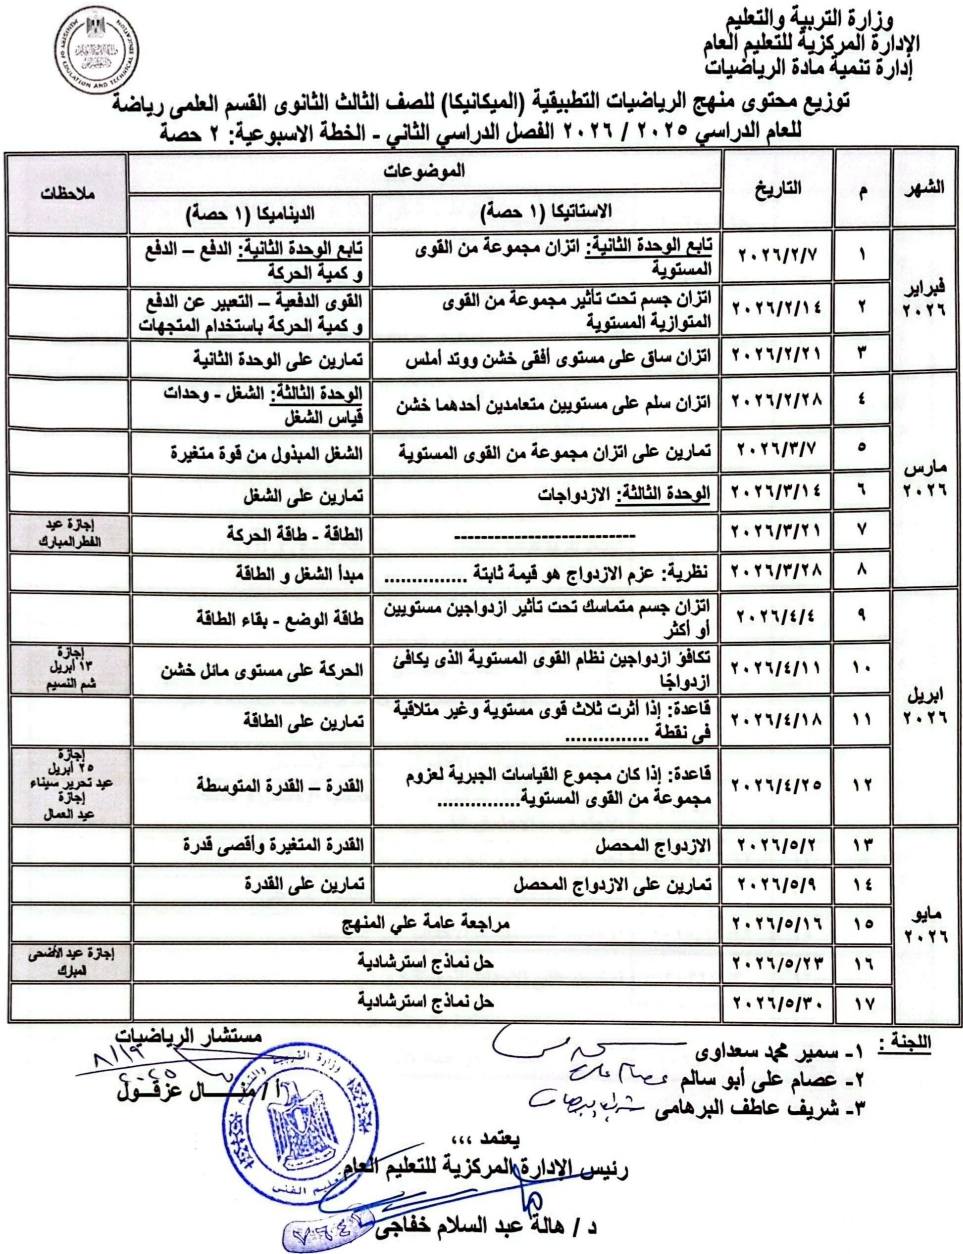 وزارة التربية والتعليم
الإدارة المركزية للتعليم العام
إدارة تنمية مادة الرياضيات
توزيع محتوى منهج الرياضيات التطبيقية (الميكانيكا) للصف الثالث الثانوى القسم العلمى رياضة
للعام الدراسي ٢٠٢٥ / ٢٠٢٦ الفصل الدراسي الثاني - الخطة الاسبوعية: ٢ حصة
الشهر م التاريخ الموضوعات ملاحظات
الاستاتيكا (١ حصة) الديناميكا (١ حصة)
فبراير ٢٠٢٦
١ ٢٠٢٦/٢/٧ تابع الوحدة الثانية: اتزان مجموعة من القوى المستوية تابع الوحدة الثانية: الدفع – الدفع و كمية الحركة
٢ ٢٠٢٦/٢/١٤ اتزان جسم تحت تأثير مجموعة من القوى المتوازية المستوية القوى الدفعية – التعبير عن الدفع و كمية الحركة باستخدام المتجهات
٣ ٢٠٢٦/٢/٢١ اتزان ساق على مستوى أفقى خشن ووتد أملس تمارين على الوحدة الثانية
مارس ٢٠٢٦
٤ ٢٠٢٦/٢/٢٨ اتزان سلم على مستويين متعامدين أحدهما خشن الوحدة الثالثة: الشغل - وحدات قياس الشغل
٥ ٢٠٢٦/٣/٧ تمارين على اتزان مجموعة من القوى المستوية الشغل المبذول من قوة متغيرة
٦ ٢٠٢٦/٣/١٤ الوحدة الثالثة: الازدواجات تمارين على الشغل
٧ ٢٠٢٦/٣/٢١ --------------------------- الطاقة - طاقة الحركة إجازة عيد الفطرالمبارك
٨ ٢٠٢٦/٣/٢٨ نظرية: عزم الازدواج هو قيمة ثابتة ............... مبدأ الشغل و الطاقة
ابريل ٢٠٢٦
٩ ٢٠٢٦/٤/٤ اتزان جسم متماسك تحت تأثير ازدواجين مستويين أو أكثر طاقة الوضع - بقاء الطاقة
١٠ ٢٠٢٦/٤/١١ تكافؤ ازدواجين نظام القوى المستوية الذى يكافئ ازدواجًا الحركة على مستوى مائل خشن إجازة ١٣ أبريل شم النسيم
١١ ٢٠٢٦/٤/١٨ قاعدة: إذا أثرت ثلاث قوى مستوية وغير متلاقية فى نقطة ............... تمارين على الطاقة
١٢ ٢٠٢٦/٤/٢٥ قاعدة: إذا كان مجموع القياسات الجبرية لعزوم مجموعة من القوى المستوية............... القدرة – القدرة المتوسطة إجازة ٢٥ أبريل عيد تحرير سيناء إجازة عيد العمال
مايو ٢٠٢٦
١٣ ٢٠٢٦/٥/٢ الازدواج المحصل القدرة المتغيرة وأقصى قدرة
١٤ ٢٠٢٦/٥/٩ تمارين على الازدواج المحصل تمارين على القدرة
١٥ ٢٠٢٦/٥/١٦ مراجعة عامة علي المنهج
١٦ ٢٠٢٦/٥/٢٣ حل نماذج استرشادية إجازة عيد الأضحى المبارك
١٧ ٢٠٢٦/٥/٣٠ حل نماذج استرشادية
اللجنة :
١- سمير محمد سعداوى
٢- عصام على أبو سالم
٣- شريف عاطف البرهامى
مستشار الرياضيات
أ / منال عزقول
يعتمد ،،،
رئيس الإدارة المركزية للتعليم العام
د / هالة عبد السلام خفاجى